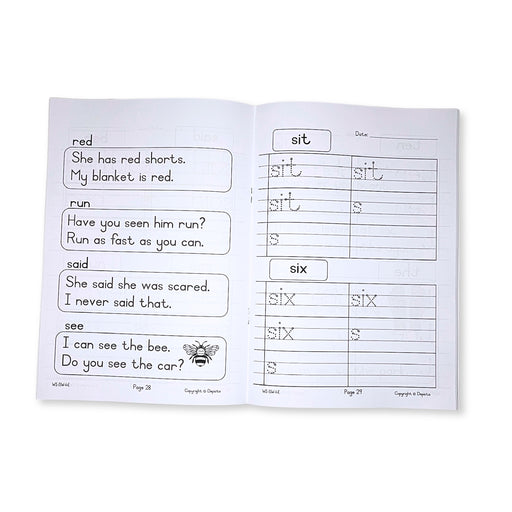 red
She has red shorts.
My blanket is red.
run
Have you seen him run?
Run as fast as you can.
said
She said she was scared.
I never said that.
see
I can see the bee.
Do you see the car?
Page 28
sit
Date:
sit sit
sit s
s
six
six six
six s
s
Page 29